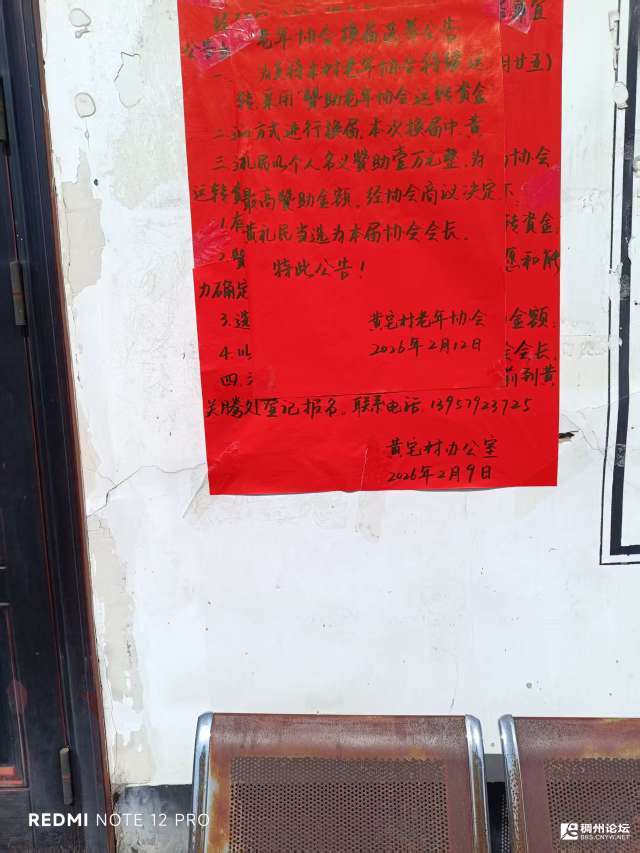 老年协会换届选举公告
为支持本村老年协会持续运
转,采用"赞助老年协会运转资金"
的方式进行换届,本次换届中,黄
礼民以个人名义赞助壹万元整,为
最高赞助金额。经协会商议决定
黄礼民当选为本届协会会长。
特此公告!
黄宅村老年协会
2026年2月12日
公告
廿五)
二
三
协会
运转
不
转资金
1.
2.赞
愿和能
力确定
3.选
金额
4.
会长
四
前到黄
关腾处登记报名。联系电话 13957923725
黄宅村办公室
2026年2月9日
REDMI NOTE 12 PRO
稠州论坛
BBS.CNYW.NET